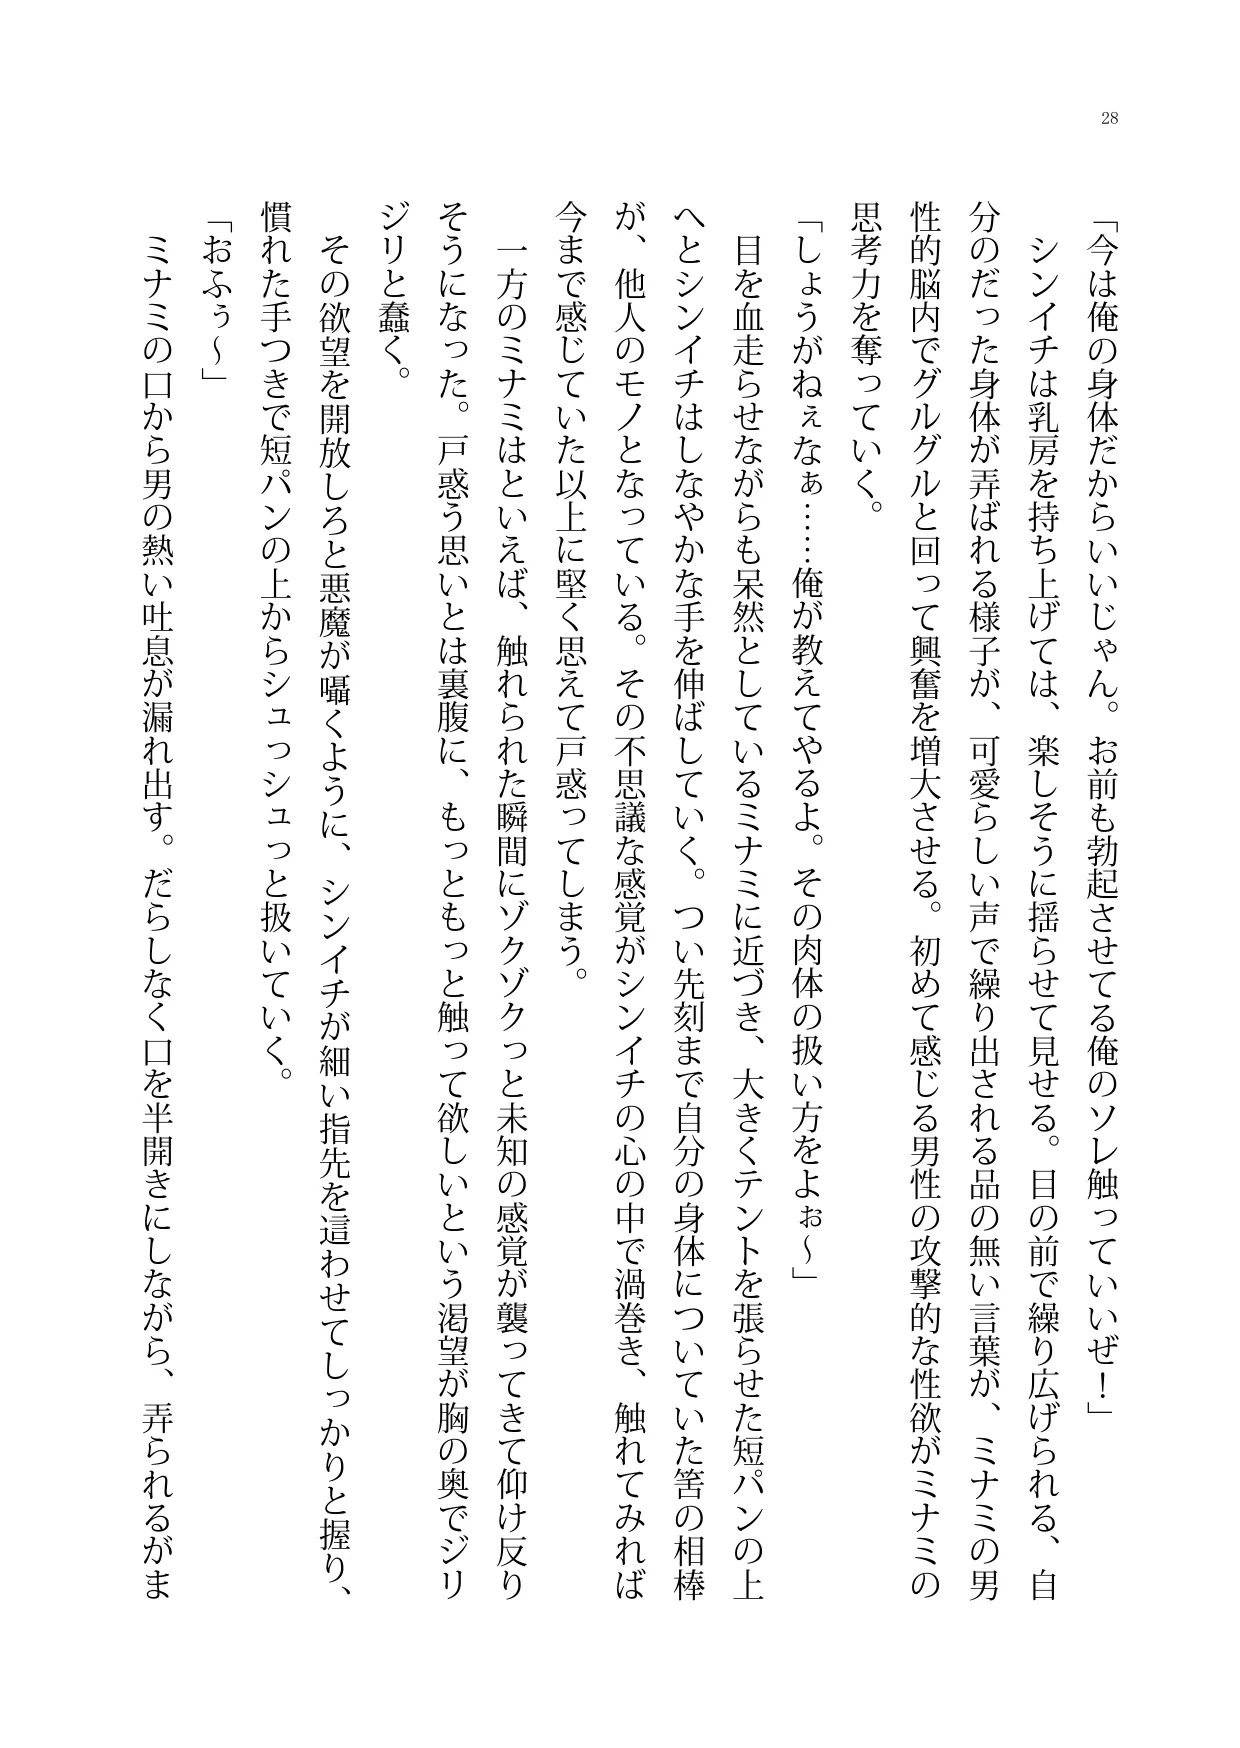 28
「今は俺の身体だからいいじゃん。お前も勃起させてる俺のソレ触っていいぜ！」
シンイチは乳房を持ち上げては、楽しそうに揺らせて見せる。目の前で繰り広げられる、自
分のだった身体が弄ばれる様子が、可愛らしい声で繰り出される品の無い言葉が、ミナミの男
性的脳内でグルグルと回って興奮を増大させる。初めて感じる男性の攻撃的な性欲がミナミの
思考力を奪っていく。
「しょうがねぇなぁ……俺が教えてやるよ。その肉体の扱い方をよぉ～」
目を血走らせながらも呆然としているミナミに近づき、大きくテントを張らせた短パンの上
へとシンイチはしなやかな手を伸ばしていく。つい先刻まで自分の身体についていた筈の相棒
が、他人のモノとなっている。その不思議な感覚がシンイチの心の中で渦巻き、触れてみれば
今まで感じていた以上に堅く思えて戸惑ってしまう。
一方のミナミはといえば、触れられた瞬間にゾクゾクっと未知の感覚が襲ってきて仰け反り
そうになった。戸惑う思いとは裏腹に、もっともっと触って欲しいという渇望が胸の奥でジリ
ジリと蠢く。
その欲望を開放しろと悪魔が囁くように、シンイチが細い指先を這わせてしっかりと握り、
慣れた手つきで短パンの上からシュっシュっと扱いていく。
「おふぅ～」
ミナミの口から男の熱い吐息が漏れ出す。だらしなく口を半開きにしながら、弄られるがま